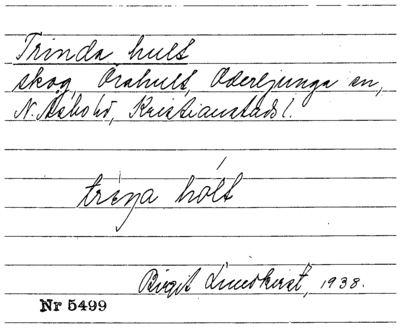 Trinda hult
skog, Örahult, Oderljunga sn,
N. Åsbo hd, Kristianstads l.
trèṇa hólt
Birgit Lundkvist, 1938.
Nr 5499